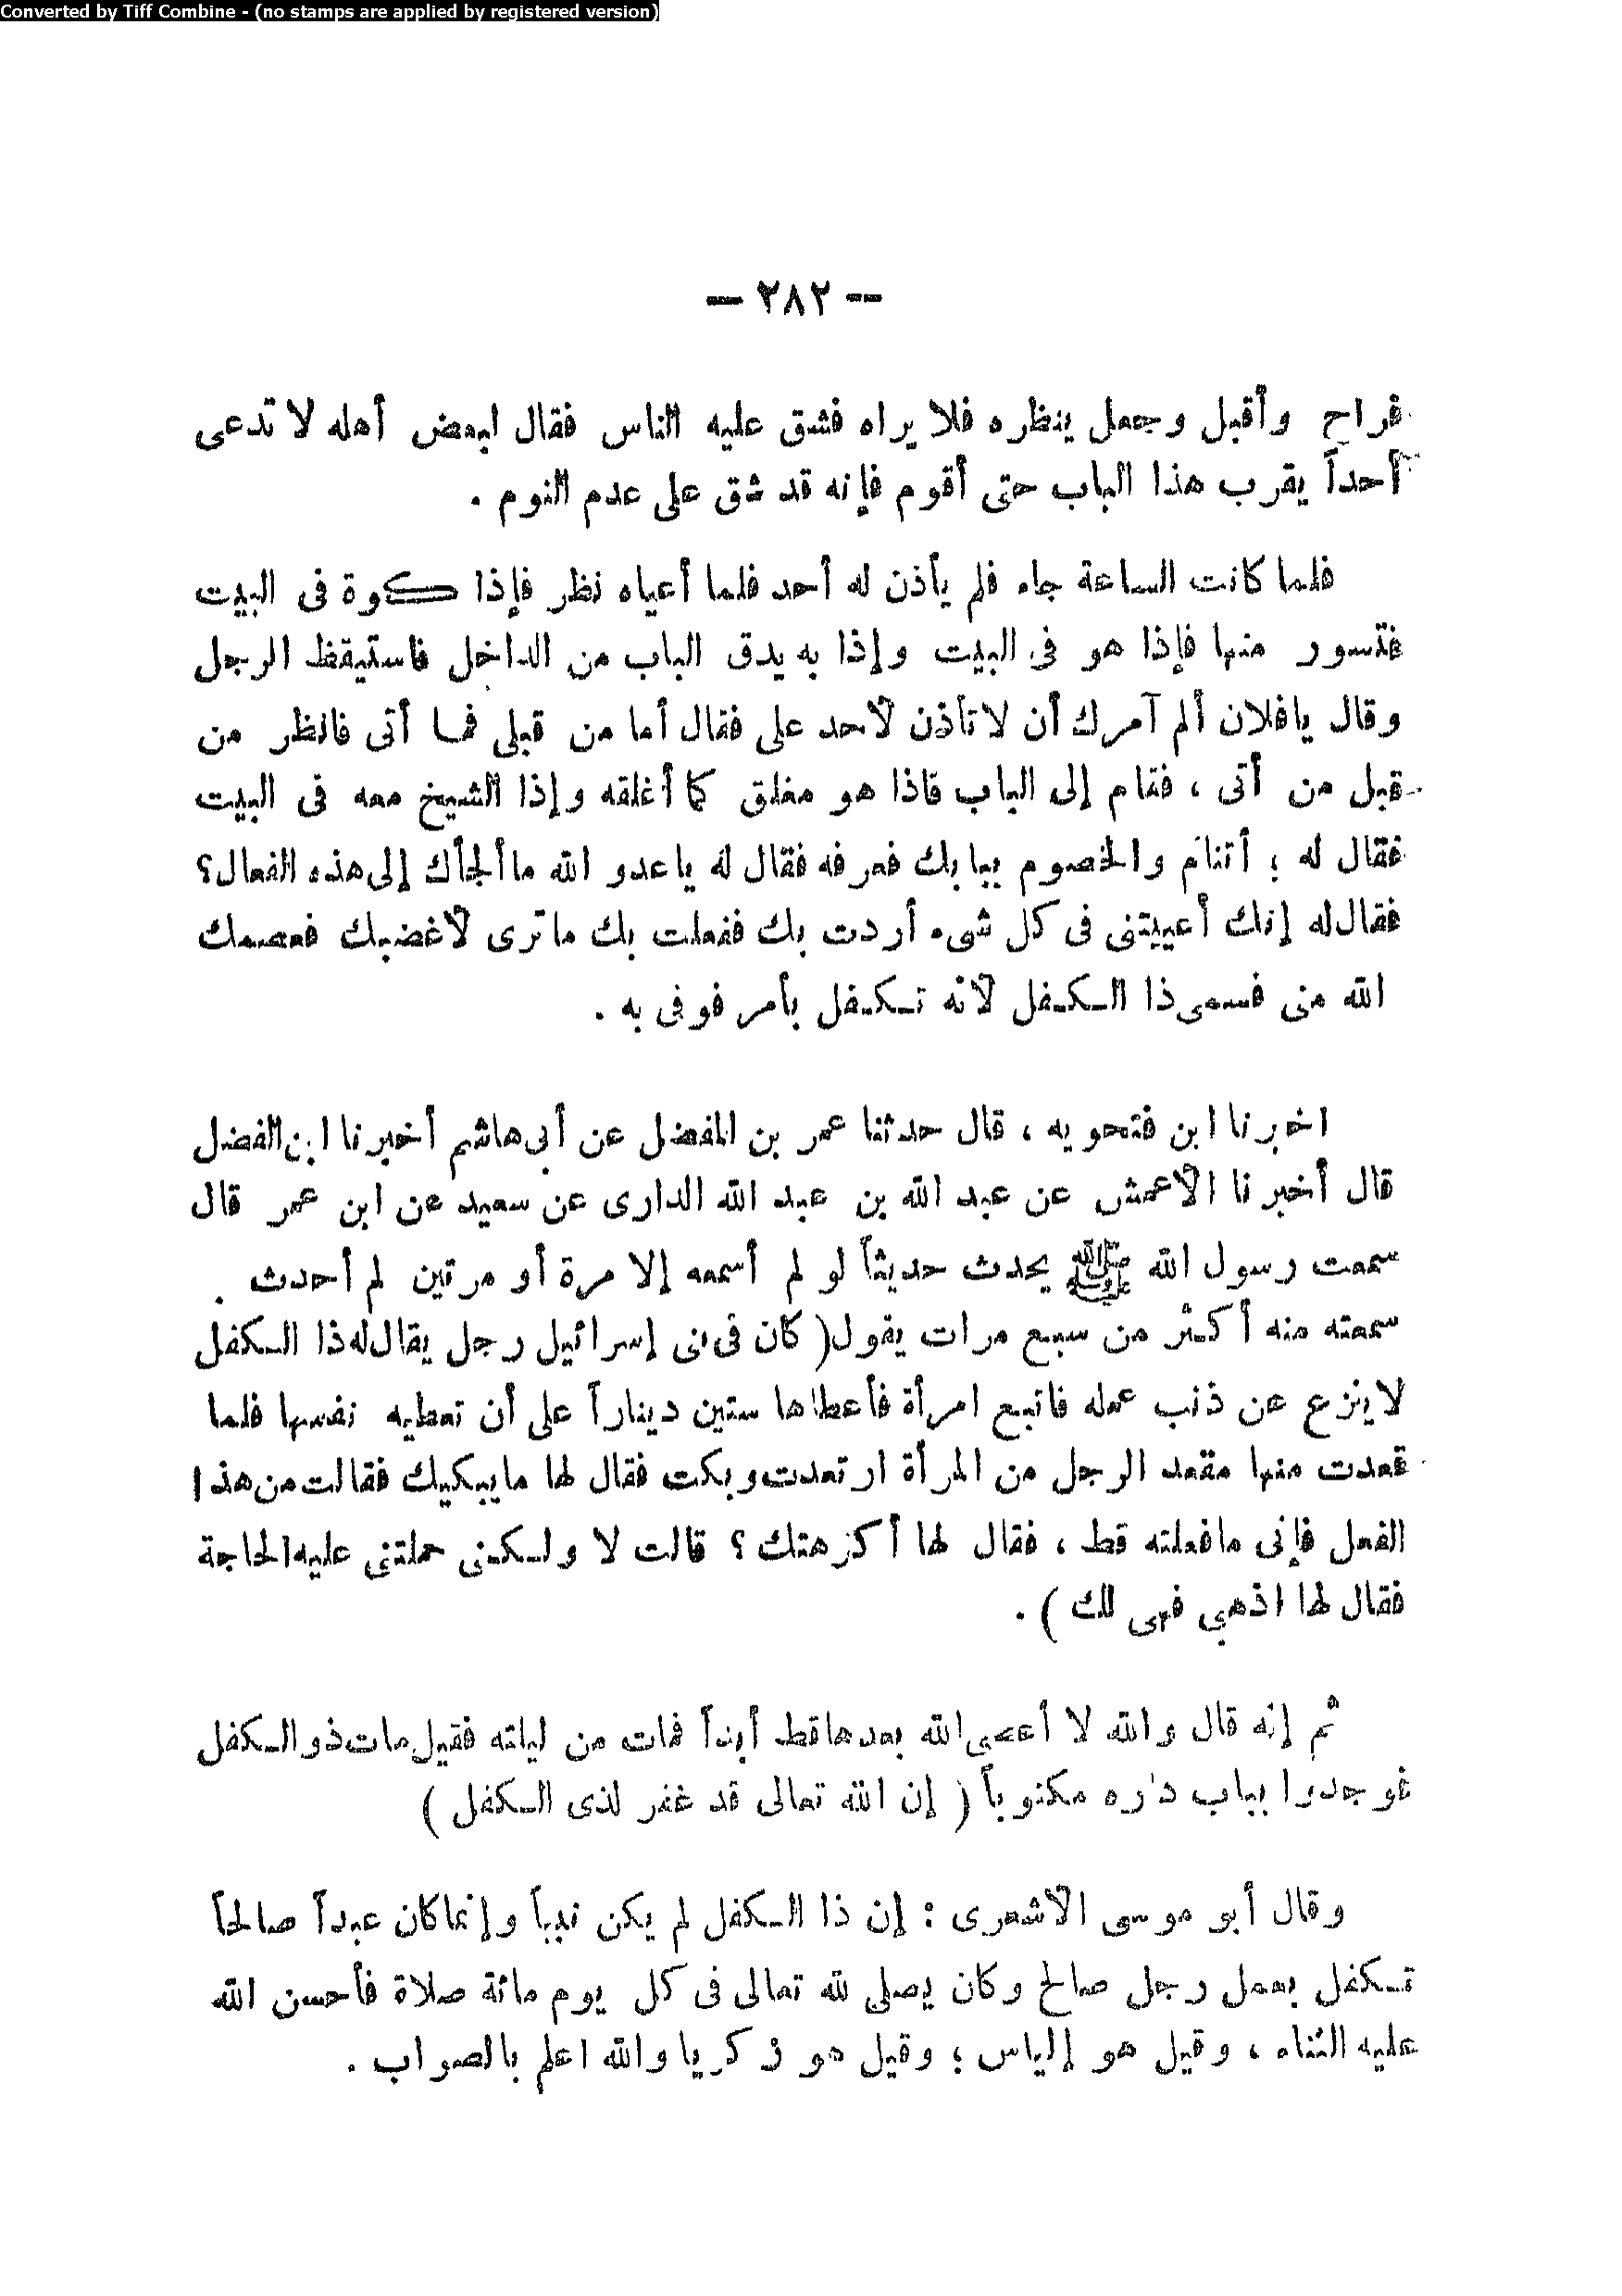 Converted by Tiff Combine - (no stamps are applied by registered version)
— ٢٨٢ --
فراح وأقبل وجعل ينظره فلا يراه فشق عليه الناس فقال لبعض أهله لا تدعى
أحداً يقرب هذا الباب حتى أقوم فإنه قد شق على عدم النوم .
فلما كانت الساعة جاء فلم يأذن له أحد فلما أعياه نظر فإذا كوة فى البيت
فتسور منها فإذا هو فى البيت وإذا به يدق الباب من الداخل فاستيقظ الرجل
وقال يافلان ألم آمرك أن لاتأذن لأحد على فقال أما من قبلى فما أتى فانظر من
قبل من أتى ، فقام إلى الباب فاذا هو مغلق كما أغلقه وإذا الشيخ معه فى البيت
فقال له ؛ أتنام والخصوم ببابك فعرفه فقال له ياعدو الله ماألجأك إلى هذه الفعال؟
فقال له إنك أعييتنى فى كل شىء أردت بك ففعلت بك ماترى لأغضبك فعصمك
الله منى فسمى ذا الكفل لأنه تكفل بأمر فوفى به .
اخبرنا ابن فتحويه ، قال حدثنا عمر بن المفضل عن أبى هاشم أخبرنا ابن الفضل
قال أخبرنا الأعمش عن عبد الله بن عبد الله الدارى عن سعيد عن ابن عمر قال
سمعت رسول الله ﷺ يحدث حديثاً لو لم أسمعه إلا مرة أو مرتين لم أحدث .
سمعته منه أكثر من سبع مرات يقول( كان فى بنى إسرائيل رجل يقال له ذا الكفل
لاينزع عن ذنب عمله فاتبع امرأة فأعطاها ستين ديناراً على أن تعطيه نفسها فلما
قعدت منها مقعد الرجل من المرأة ارتعدت وبكت فقال لها مايبكيك فقالت من هذا
الفعل فإنى مافعلته قط ، فقال لها أكرهتك ؟ قالت لا ولكنى حملتنى عليه الحاجة
فقال لها اذهبي فهى لك ) .
ثم إنه قال والله لا أعصى الله بعدها قط أبداً فمات من ليلته فقيل مات ذو الكفل
فوجدوا بباب داره مكتوباً ( إن الله تعالى قد غفر لذى الكفل )
وقال أبو موسى الأشعرى : إن ذا الكفل لم يكن نبياً وإنما كان عبداً صالحاً
تكفل بعمل رجل صالح وكان يصلى لله تعالى فى كل يوم مائة صلاة فأحسن الله
عليه الثناء ، وقيل هو إلياس ؛ وقيل هو زكريا والله اعلم بالصواب .